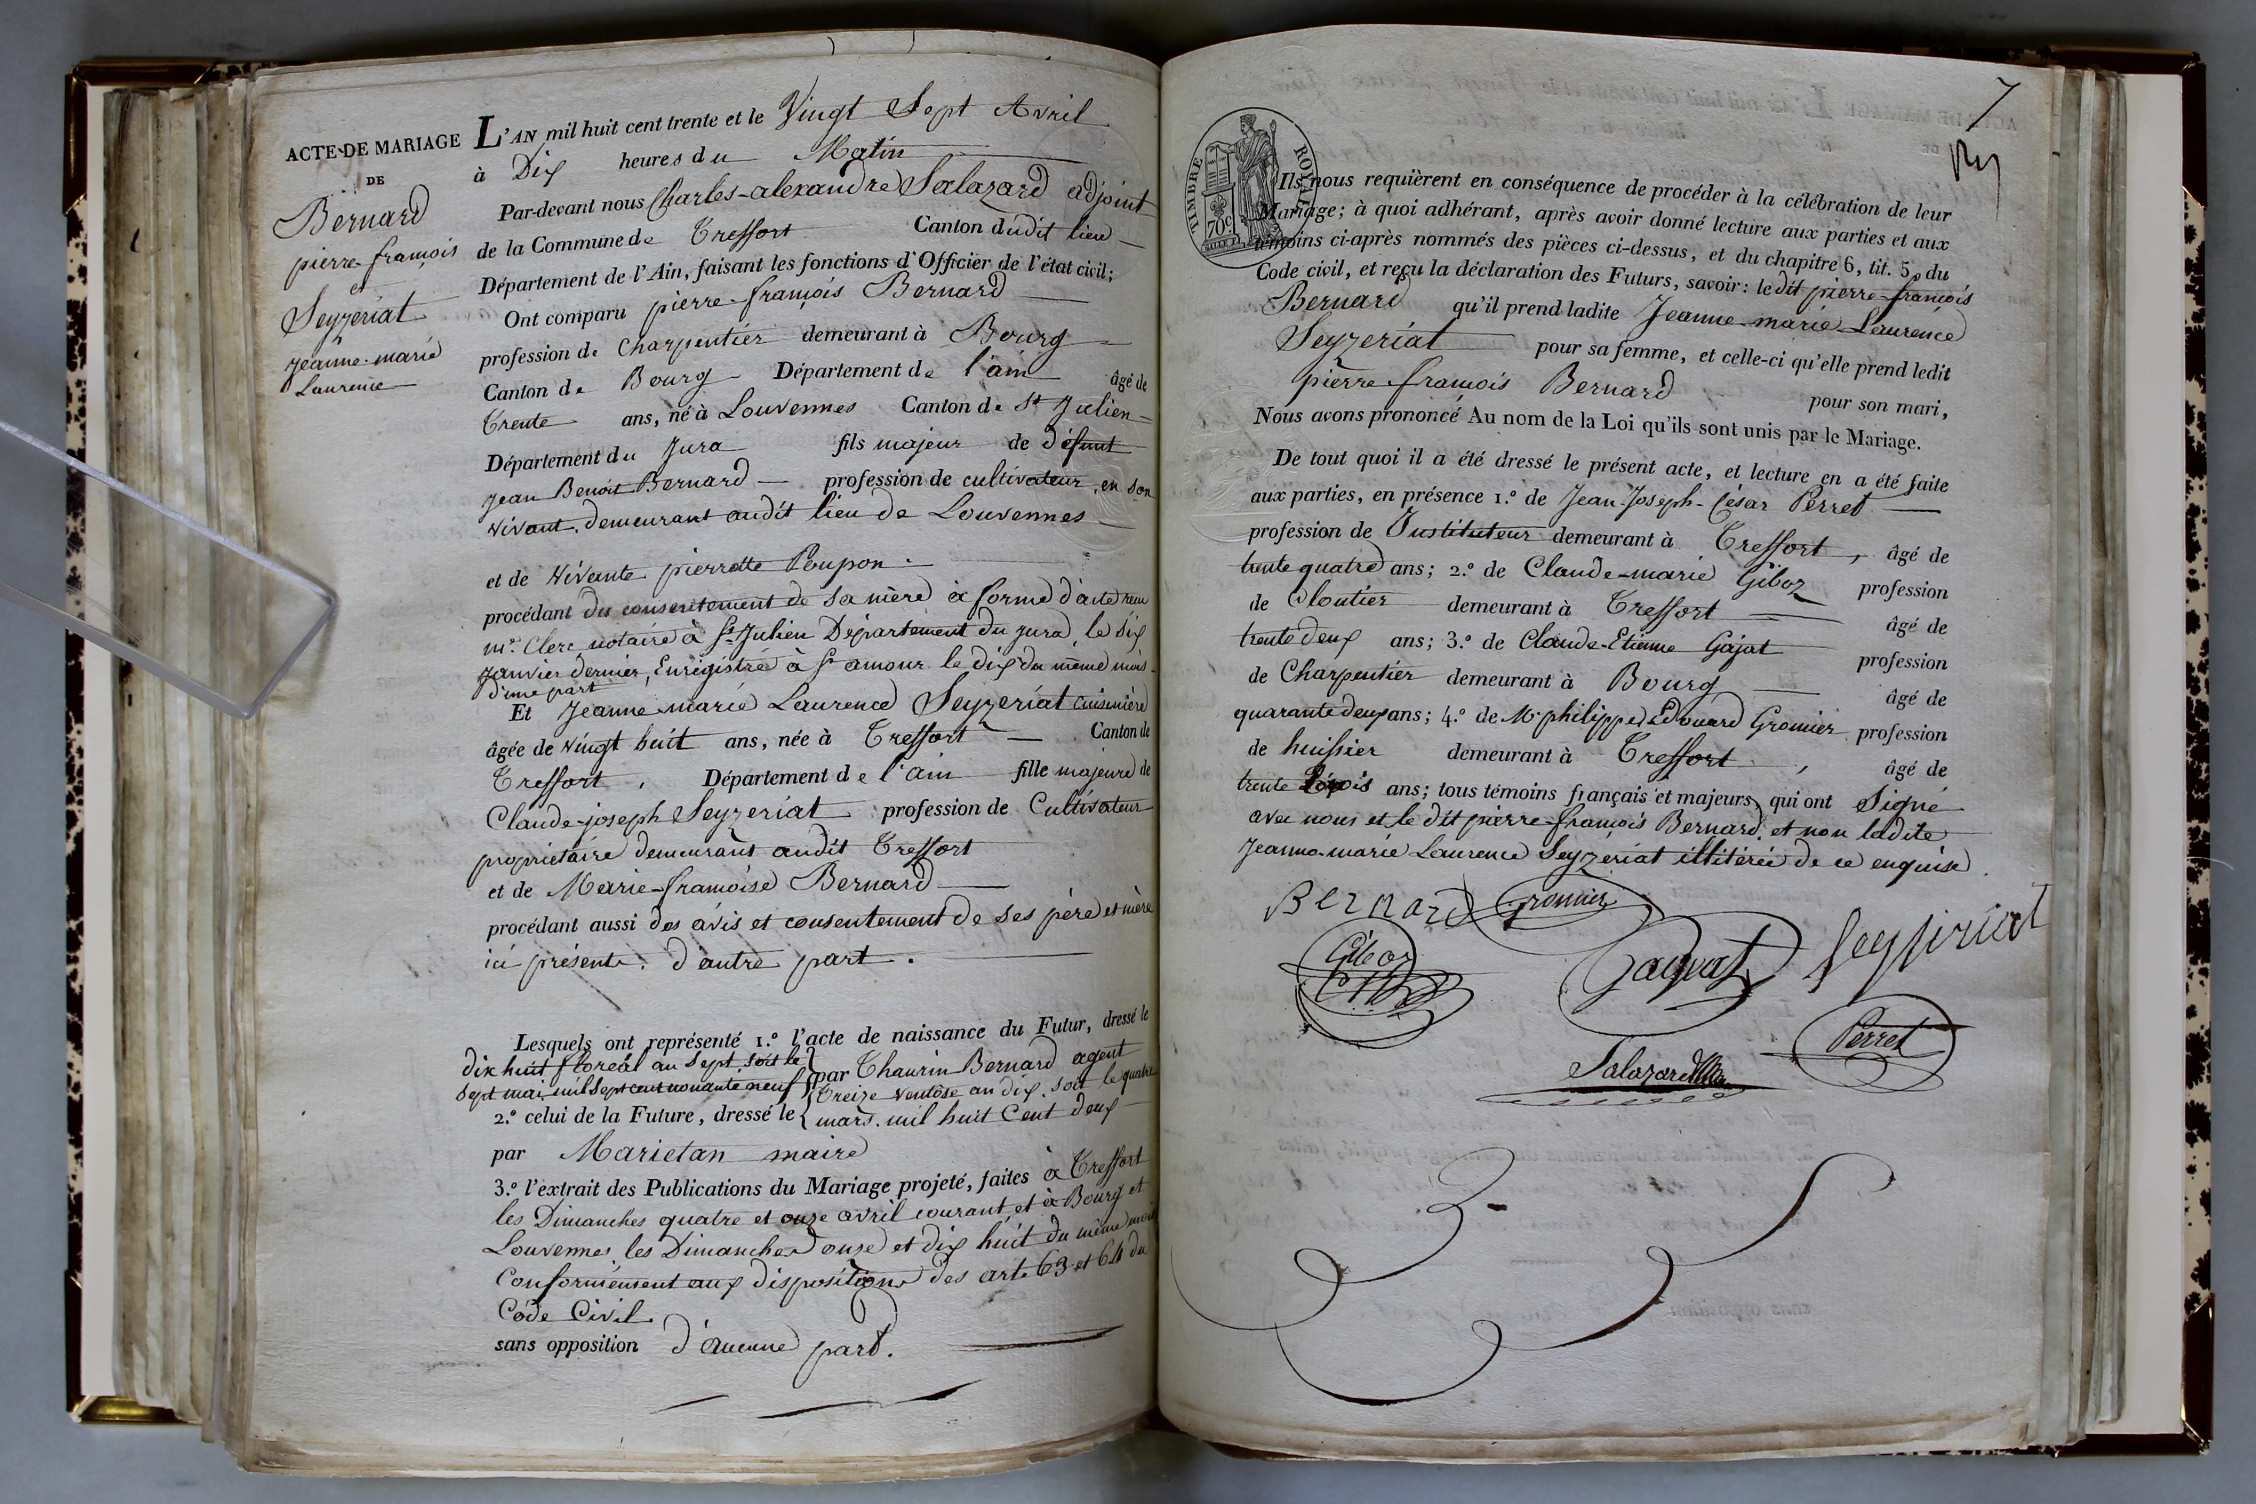 ACTE DE MARIAGE
DE
Bernard
pierre-françois
et
Seyzeriat
Jeanne-marie
Laurence
L'AN mil huit cent trente et le Vingt Sept Avril
à Dix heures du Matin
Par-devant nous Charles-alexandre Salazard adjoint
de la Commune de Treffort Canton dudit lieu
Département de l'Ain, faisant les fonctions d'Officier de l'état civil;
Ont comparu pierre-françois Bernard
profession de Charpentier demeurant à Bourg
Canton de Bourg Département de l'ain âgé de
Trente ans, né à Louvennes Canton de St Julien
Département du Jura fils majeur de défunt
Jean Benoit Bernard profession de cultivateur, en son
vivant demeurant audit lieu de Louvennes
et de vivante pierrette Poupon.
procédant du consentement de sa mère à forme d'acte reçu
me. Clerc notaire à St. Julien Département du Jura, le dix
janvier dernier, Enregistrée à St amour le dix du même mois
d'une part
Et Jeanne-marie Laurence Seyzeriat cuisinière
âgée de vingt huit ans, née à Treffort Canton de
Treffort, Département de l'ain fille majeure de
Claude-joseph Seyzeriat profession de Cultivateur
propriétaire demeurant audit Treffort
et de Marie-françoise Bernard
procédant aussi des avis et consentement de ses père et mère
ici présents. d'autre part.
Lesquels ont représenté 1.º l'acte de naissance du Futur, dressé le
dix huit floréal an sept, soit le
sept mai mil sept cent nonante neuf } par Thaurin Bernard agent
2.º celui de la Future, dressé le { treize ventôse an dix. soit le quatre
mars. mil huit Cent deux
par Marietan maire
3.º l'extrait des Publications du Mariage projeté, faites à Treffort
les Dimanches quatre et onze avril courant, et à Bourg et
Louvennes les Dimanches onze et dix huit du même mois
Conformément aux dispositions des arts 63 et 64 du
Code Civil.
sans opposition d'aucune part.
7
TIMBRE ROYAL
70c
Ils nous requièrent en conséquence de procéder à la célébration de leur
Mariage; à quoi adhérant, après avoir donné lecture aux parties et aux
témoins ci-après nommés des pièces ci-dessus, et du chapitre 6, tit. 5, du
Code civil, et reçu la déclaration des Futurs, savoir: ledit pierre-françois
Bernard qu'il prend ladite Jeanne-marie-Laurence
Seyzeriat pour sa femme, et celle-ci qu'elle prend ledit
pierre-françois Bernard pour son mari,
Nous avons prononcé Au nom de la Loi qu'ils sont unis par le Mariage.
De tout quoi il a été dressé le présent acte, et lecture en a été faite
aux parties, en présence 1.º de Jean-Joseph-César Perret
profession de Instituteur demeurant à Treffort, âgé de
trente quatre ans; 2.º de Claude-marie Giboz profession
de Cloutier demeurant à Treffort âgé de
trente deux ans; 3.º de Claude-Etienne Gajat profession
de Charpentier demeurant à Bourg âgé de
quarante deux ans; 4.º de Mr philippe Edouard Gromier profession
de huissier demeurant à Treffort, âgé de
trente trois ans; tous témoins français et majeurs, qui ont Signé
avec nous et le dit pierre-françois Bernard. et non ladite
Jeanne-marie Laurence Seyzeriat illitérée de ce enquise.
Bernard Gromier
Giboz Gaÿvat Seysiriat
Perret
Salazard